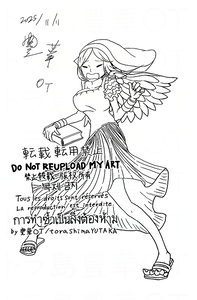 2025/11/11
豊華
OT
転載転用禁止
DO NOT REUPLOAD MY ART
禁止轉載 版权所有
Tous les droits sont réservés
La reproduction est interdite
การทำซ้ำเป็นสิ่งต้องห้าม
by 豊華OT/torashimaYUTAKA